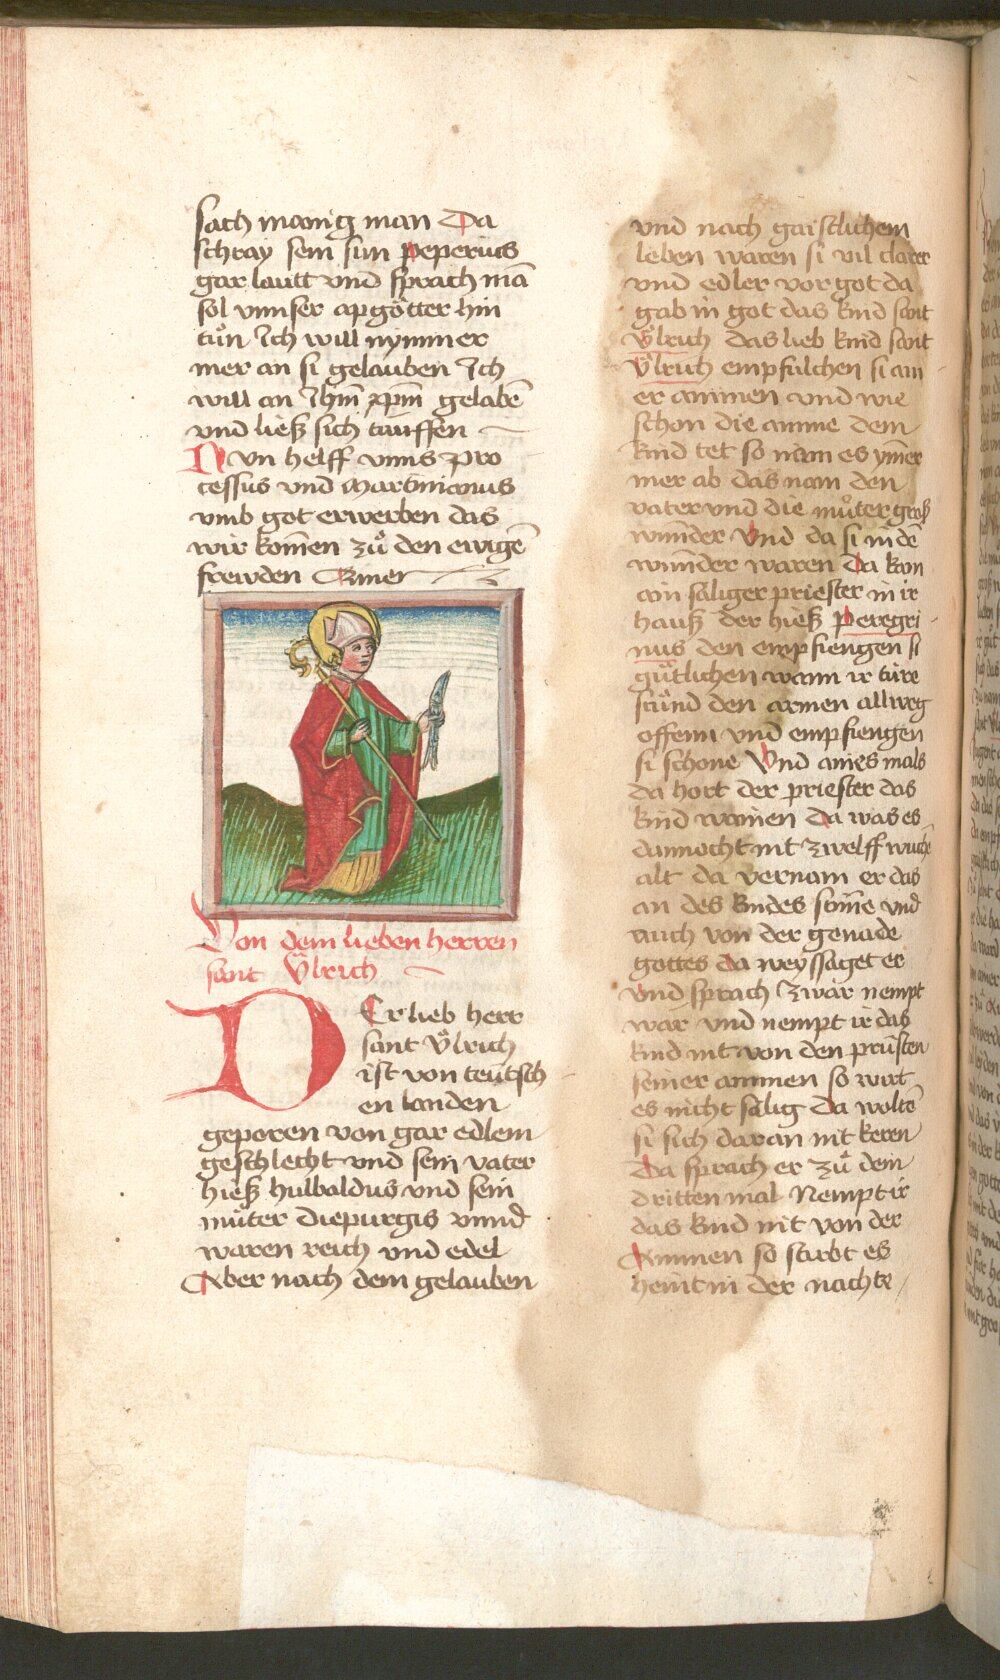 sach manig man Da
schray sein sun Peperius
gar lautt vnd sprach mā
sol vnnser apgötter hin
tůn Ich will nymmer
mer an si gelauben Ich
will an Jhm̄ xpm̄ gelabē
vnd ließ sich tauffen
Nvn helff vnns Pro
cessus vnd Martinianus
vmb got erwerben das
wir komen zů den ewigē
frewden Amer
Von dem lieben herren
sant V̊lrich
DEr lieb herr
sant V̊lrich
ist von teütsch
en landen
geporen von gar edlem
geschlecht vnd sein vater
hieß hulbaldus vnd sein
můter diepurgis vnnd
waren reich vnd edel
Aber nach dem gelauben
vnd nach gaistlichem
leben waren si vil clarer
vnd edler vor got da
gab in got das kind sant
V̊lrich das lieb kind sant
V̊lrich empfulchen si ain
er ammen vnd wie
schon die amme dem
kind tet so nam es ym̄er
mer ab das nam den
vater vnd die můter groß
wunder Vnd da si in dē
wunder waren Da kam
ain säliger priester in ir
hauß der hieß Peregri
nus den empfiengen si
gütlichen wann ir türe
stůnd den armen allweg
offenn vnd empfiengen
si schone Vnd aines mals
da hort der priester das
kind wainen Da was es
dannocht nit zwelff wuchē
alt da vernam er das
an des kindes stim̄e vnd
auch von der genade
gottes Da weyssaget er
Vnd sprach Zwar nempt
war vnd nempt ir das
kind nit von den prüsten
seiner ammen so wirt
es nicht sälig Da woltē
si sich daran nit keren
Da sprach er zů dem
dritten mal Nempt ir
das kind nit von der
Ammen so stirbt es
heint in der nachte